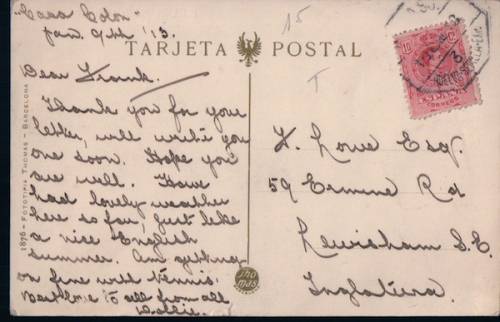 "Casa Colon"
Jan. 9th '13.
15
TARJETA POSTAL
T
Dear Frank.
Thank you for your
letter, will write you
one soon. Hope you
are well. Have
had lovely weather
here so far, just like
a nice English
summer. Am getting
on fine with tennis.
Best love to all from all
Dollie.
F. Lowe Esq.
59 Ermine Rd
Lewisham S.E.
Inglaterra.
1876 - FOTOTIPIA THOMAS - BARCELONA
THOMAS
10
CORREOS